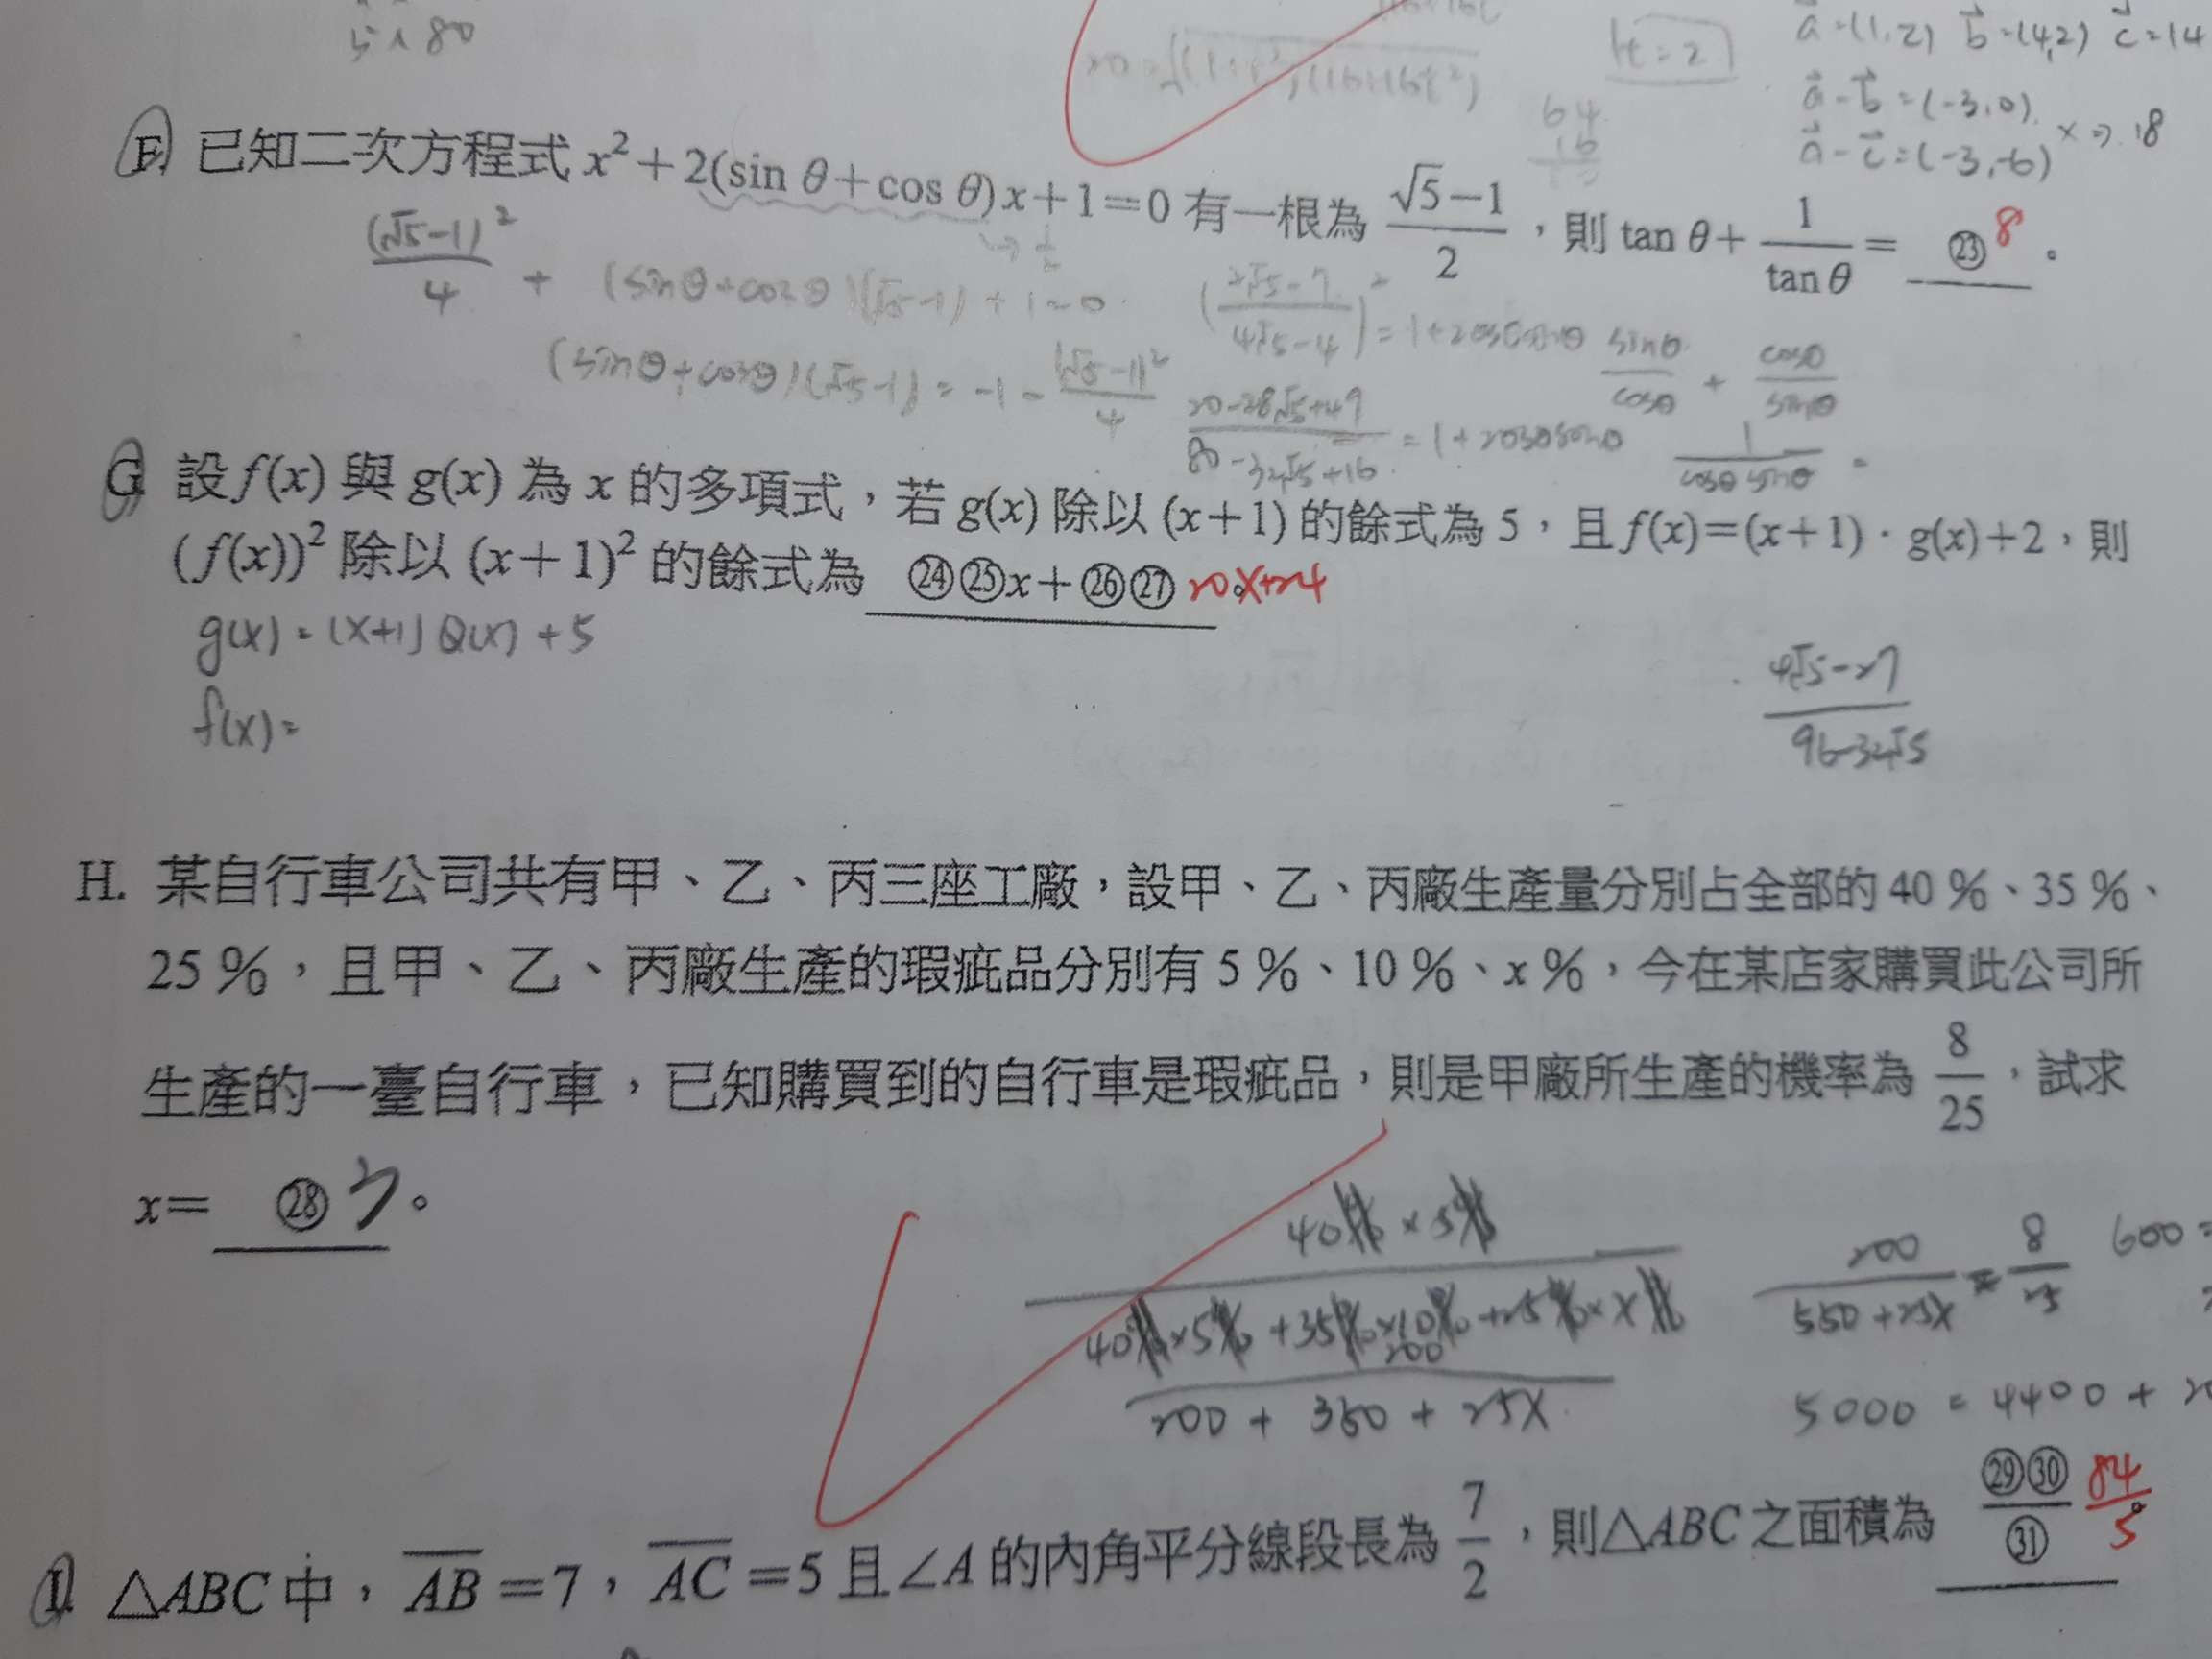 5 1 80
k = 2
a = (1, 2) b = (4, 2) c = (4
a - b = (-3, 0)
a - c = (-3, -6) × => 18
64
16
F. 已知二次方程式 x² + 2(sin θ + cos θ)x + 1 = 0 有一根為 (√5 - 1)/2，則 tan θ + 1/tan θ = ㉓ 8。
(√5-1)²/4 + (sinθ+cosθ)(√5-1) + 1 = 0
((2√5-7)/(4√5-4))² = 1+2cosθsinθ
sinθ/cosθ + cosθ/sinθ
(sinθ+cosθ)(√5-1) = -1 - (√5-1)²/4
(20-28√5+49)/(80-32√5+16) = 1+2cosθsinθ
1/(cosθ sinθ) =
G. 設 f(x) 與 g(x) 為 x 的多項式，若 g(x) 除以 (x+1) 的餘式為 5，且 f(x)=(x+1)·g(x)+2，則
(f(x))² 除以 (x+1)² 的餘式為 ㉔㉕x+㉖㉗。20x+24
g(x) = (x+1) Q(x) + 5
f(x) =
(4√5-27)/(96-32√5)
H. 某自行車公司共有甲、乙、丙三座工廠，設甲、乙、丙廠生產量分別占全部的 40 %、35 %、
25 %，且甲、乙、丙廠生產的瑕疵品分別有 5 %、10 %、x %，今在某店家購買此公司所
生產的一臺自行車，已知購買到的自行車是瑕疵品，則是甲廠所生產的機率為 8/25，試求
x= ㉘ 3。
40% × 5%
40%×5% + 35%×10% + 25%×x%
200
200 + 350 + 25x
200/(550+25x) = 8/25
600 =
5000 = 4400 + 20
I. △ABC 中，AB=7，AC=5 且∠A 的內角平分線段長為 7/2，則△ABC 之面積為 ㉙㉚/㉛。84/5